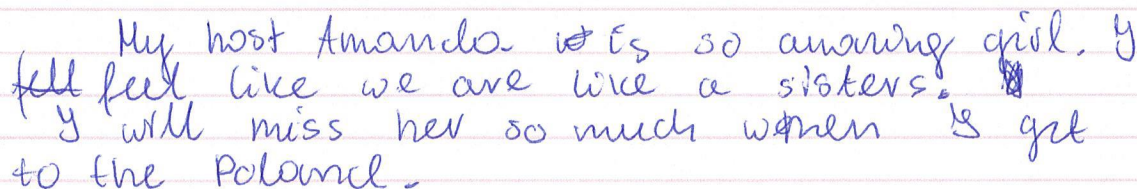 My host Amanda is so amazing girl. I
feel like we are like a sisters.
I will miss her so much when I get
to the Poland.